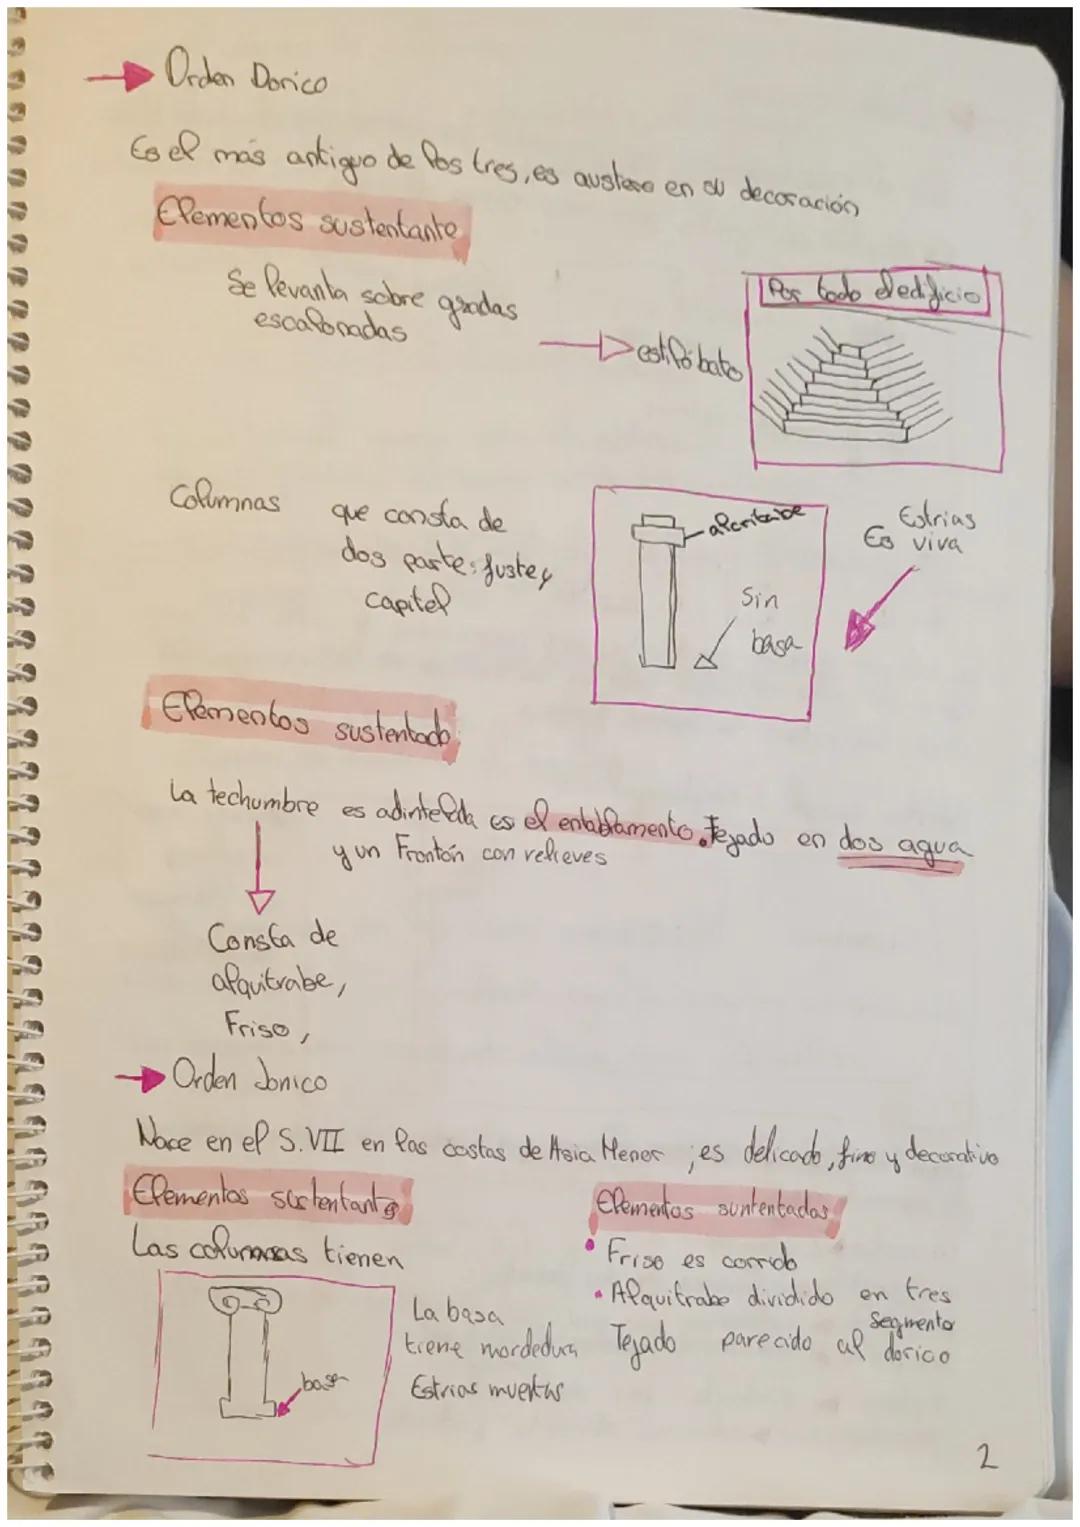 Orden Dorico
Es el más antiguo de los tres, es austero en su decoración
Elementos sustentante
Se levanta sobre gradas
escalonadas
estilóbato
Por todo el edificio
Columnas
que consta de
dos parte: fuste y
capitel
Sin
basa
Estrias
Es viva
Elementos sustentado
La techumbre es adintelada es el entablamento. Tejado en dos agua
y un Frontón con relieves
Consta de
alquitrabe,
Friso,
Orden Jonico
Nace en el S.VII en las costas de Asia Menor ; es delicado, fino y decorativo
Elementos sustentante
Las columnas tienen
basa
La basa
tiene mordedura
Estrias muertas
Elementos suntentados
• Friso es corrido
• Alquitrabe dividido en tres
segmento
Tejado parecido al dorico
2